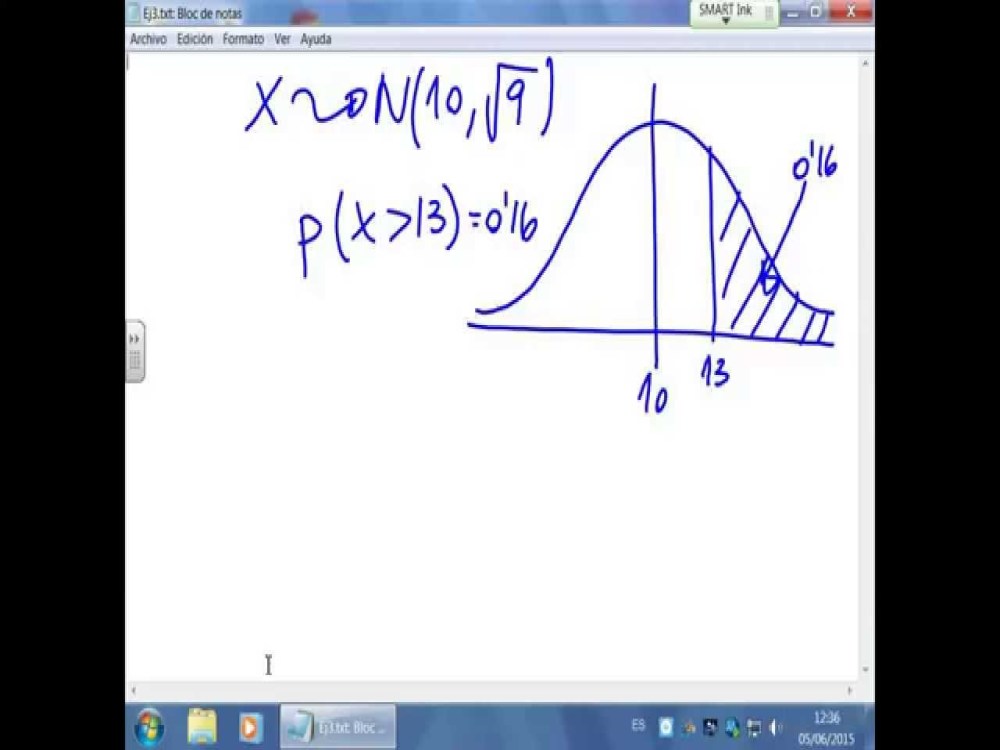 Ej3.txt: Bloc de notas
SMART Ink
Archivo Edición Formato Ver Ayuda
X~N(10,√9)
p(X>13)=0'16
0'16
10
13
Ej3.txt: Bloc ...
ES
12:36
05/06/2015